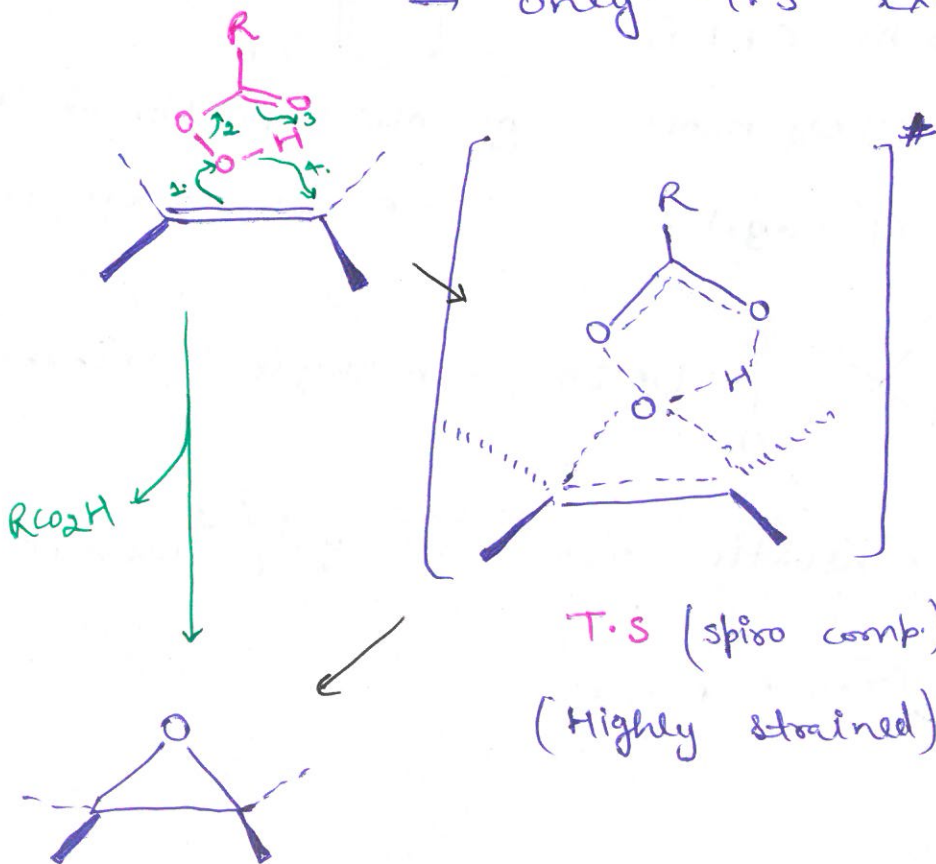 → only TS
R
O O
2 3
O - H
1. 4.
#
R
O O
H
O
RCO2H
T.S (spiro comp.)
(Highly strained)
O